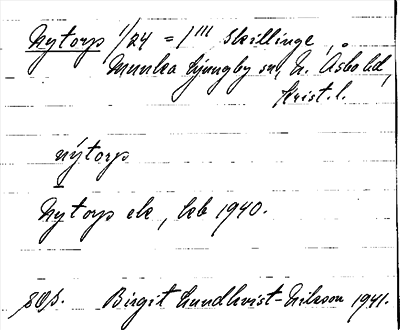 Nytorp 1/24 = 1 III Skillinge,
Munka Ljungby sn, N. Åsbo hd,
Krist. l.
nýtorp
Nytorp ek, kb 1940.
Birgit Lundkvist-Nilsson 1941.